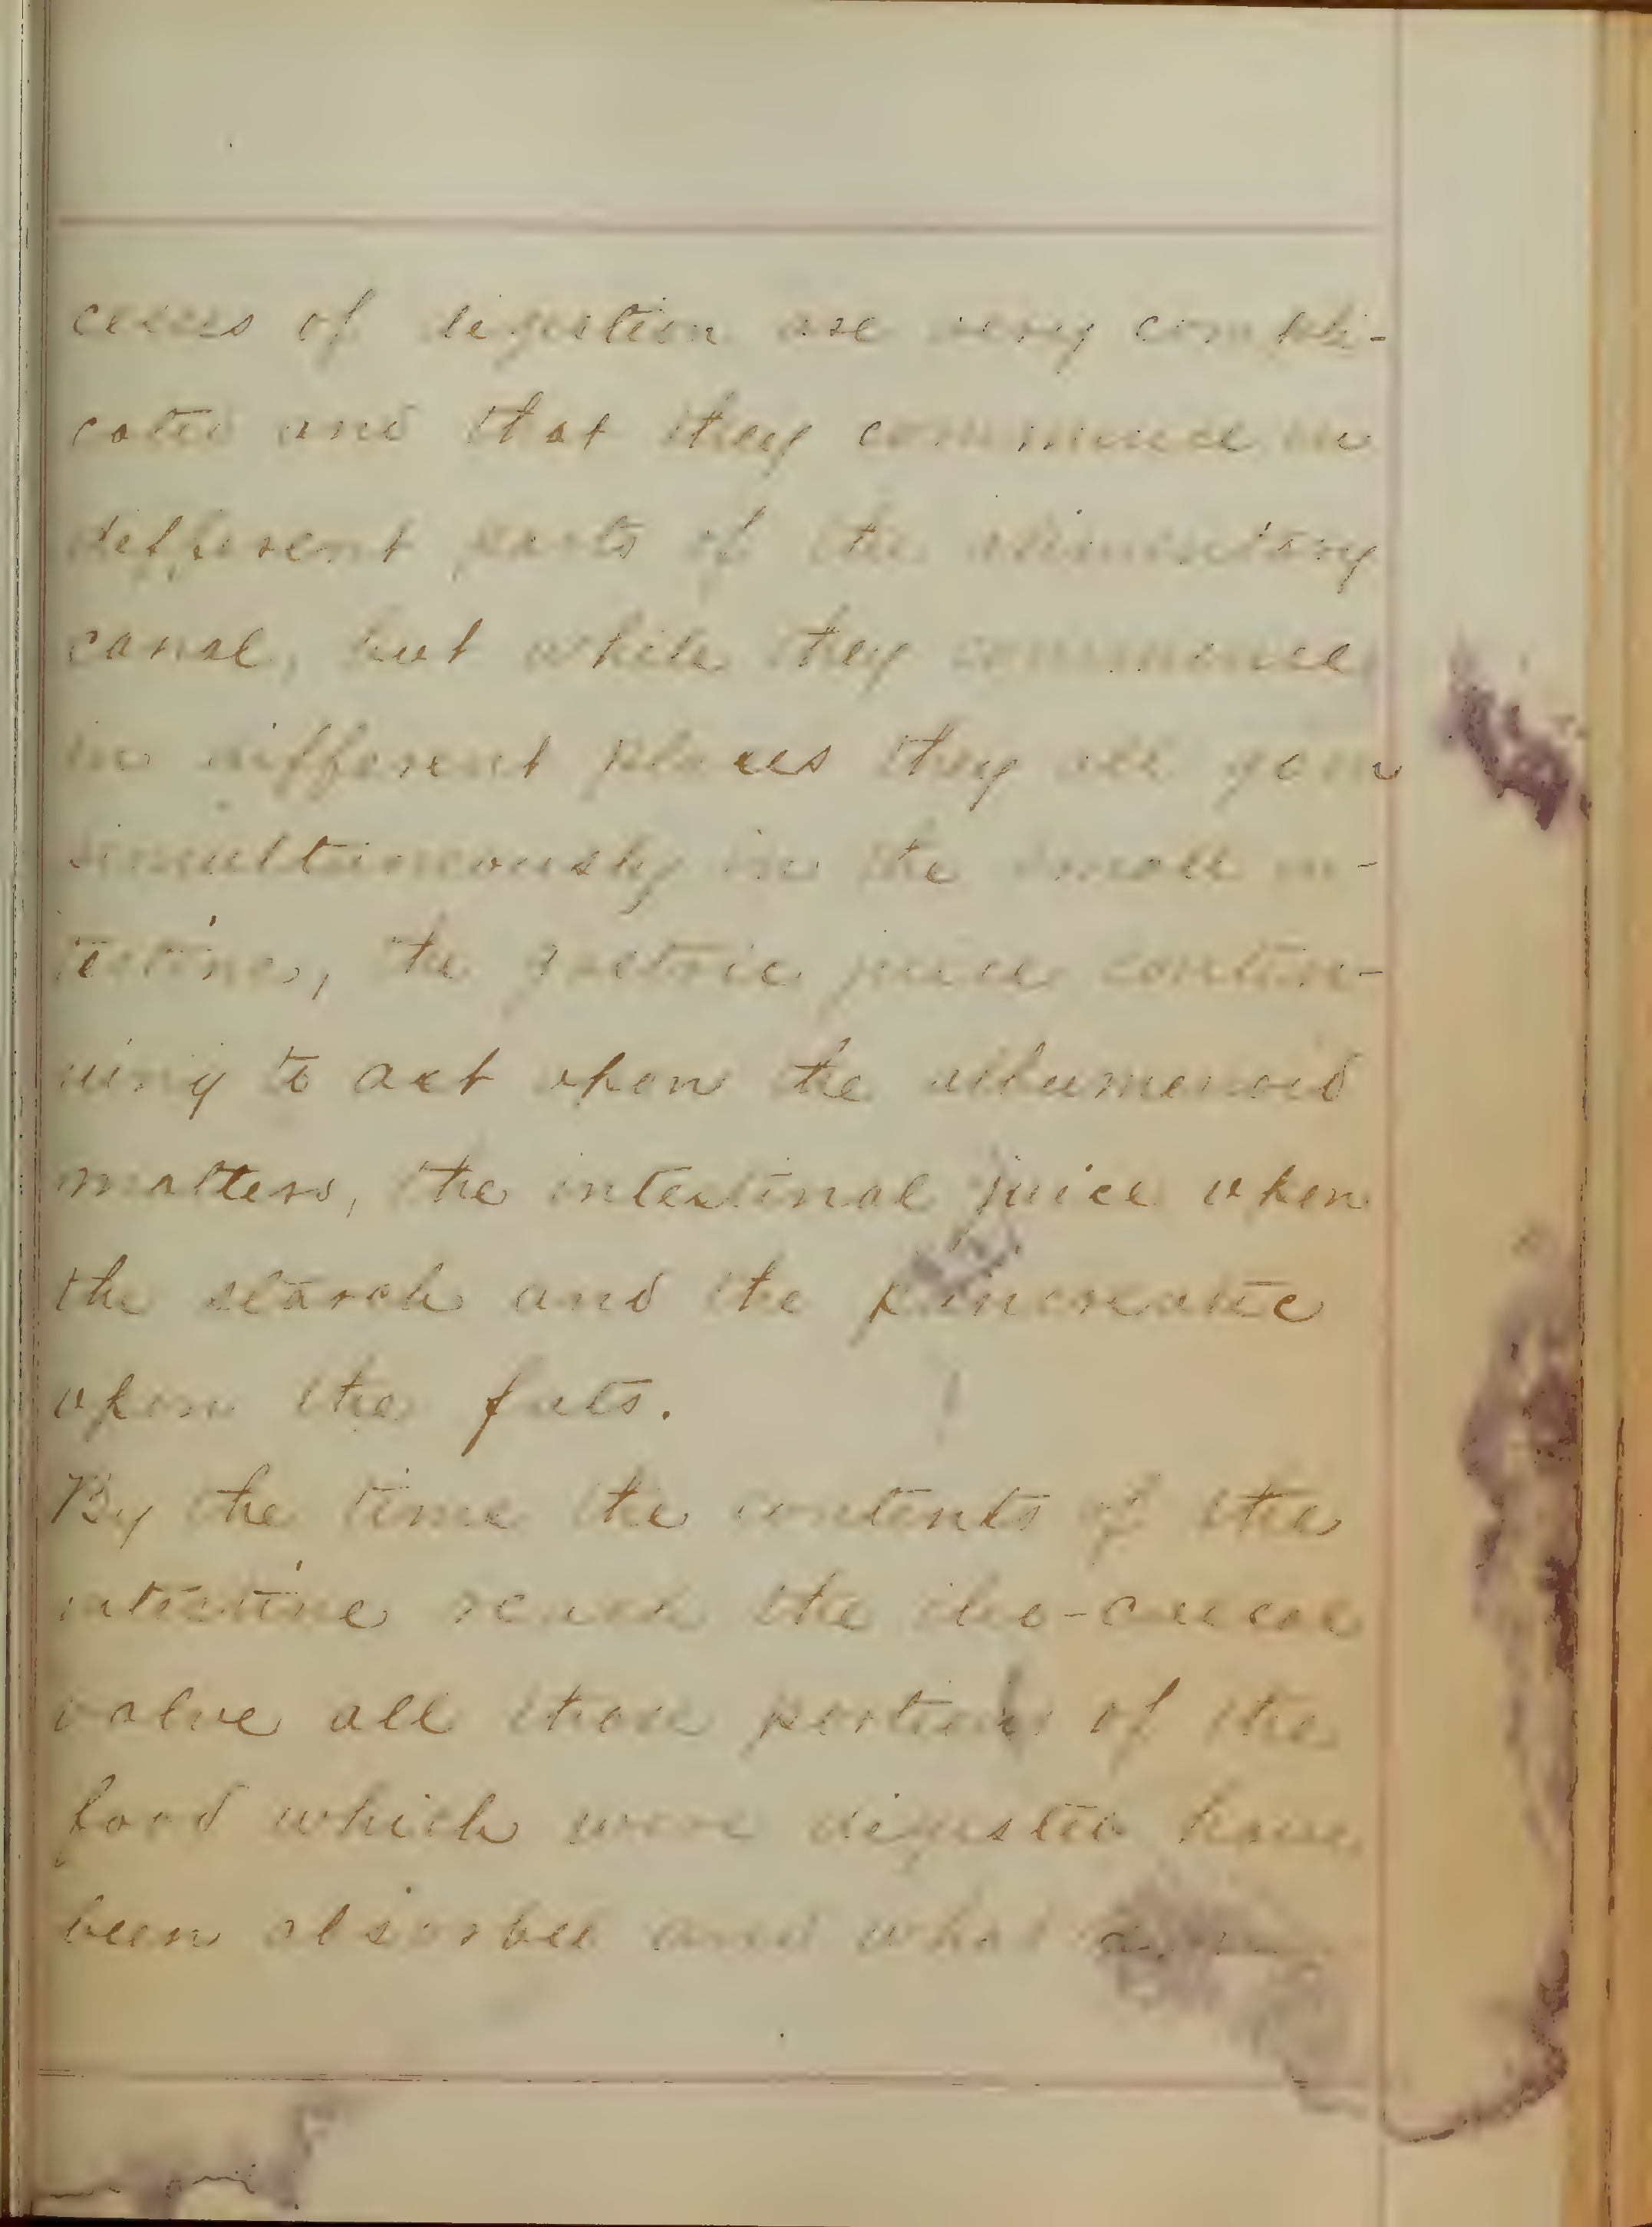 cesses of digestion are very compli-
cated and that they commence in
different parts of the alimentary
canal, but while they commence
in different places they all join
simultaneously in the small in-
testines, the gastric juice contin-
uing to act upon the albumenoid
matters, the intestinal juice upon
the starch and the pancreatic
upon the fats.
By the time the contents of the
intestine reach the ileo-caecal
valve all those portions of the
food which were digested have
been absorbed and what